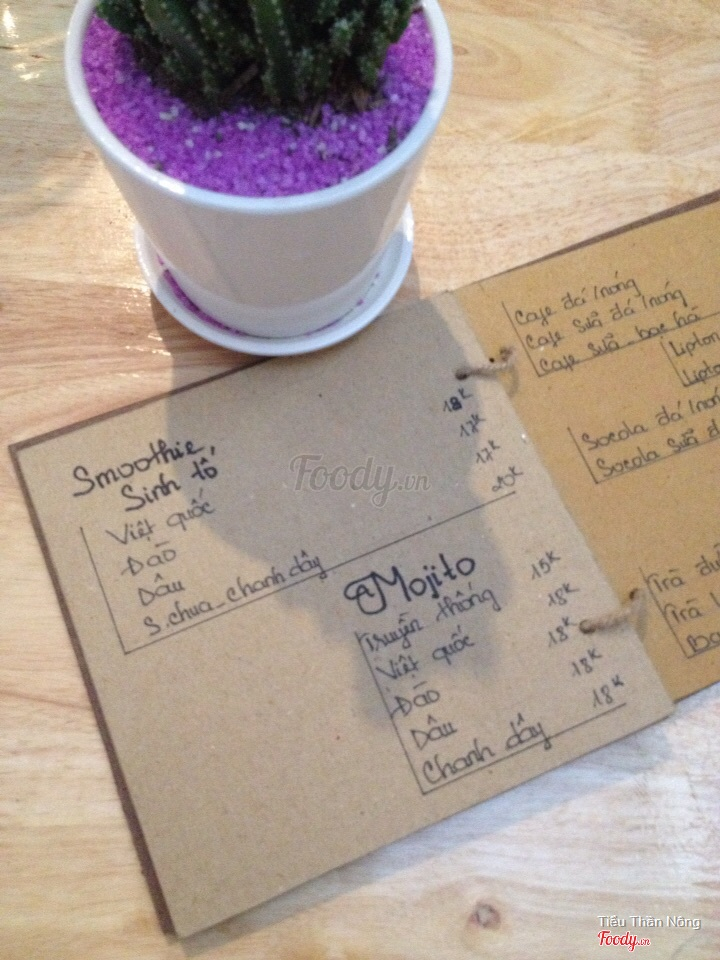 Smoothie
Sinh tố
Việt quốc 18K
Đào 17K
Dâu 17K
S.chua_chanh dây 20K
Mojito
Truyền thống 15K
Việt quốc 18K
Đào 18K
Dâu 18K
Chanh dây 18K
Cafe đá/nóng
Cafe sữa đá/nóng
Cafe sữa_bạc hà
Lipton
Lipton
Socola đá/nóng
Socola sữa đ
Trà
Trà
Foody.vn
Tiểu Thần Nông
Foody.vn